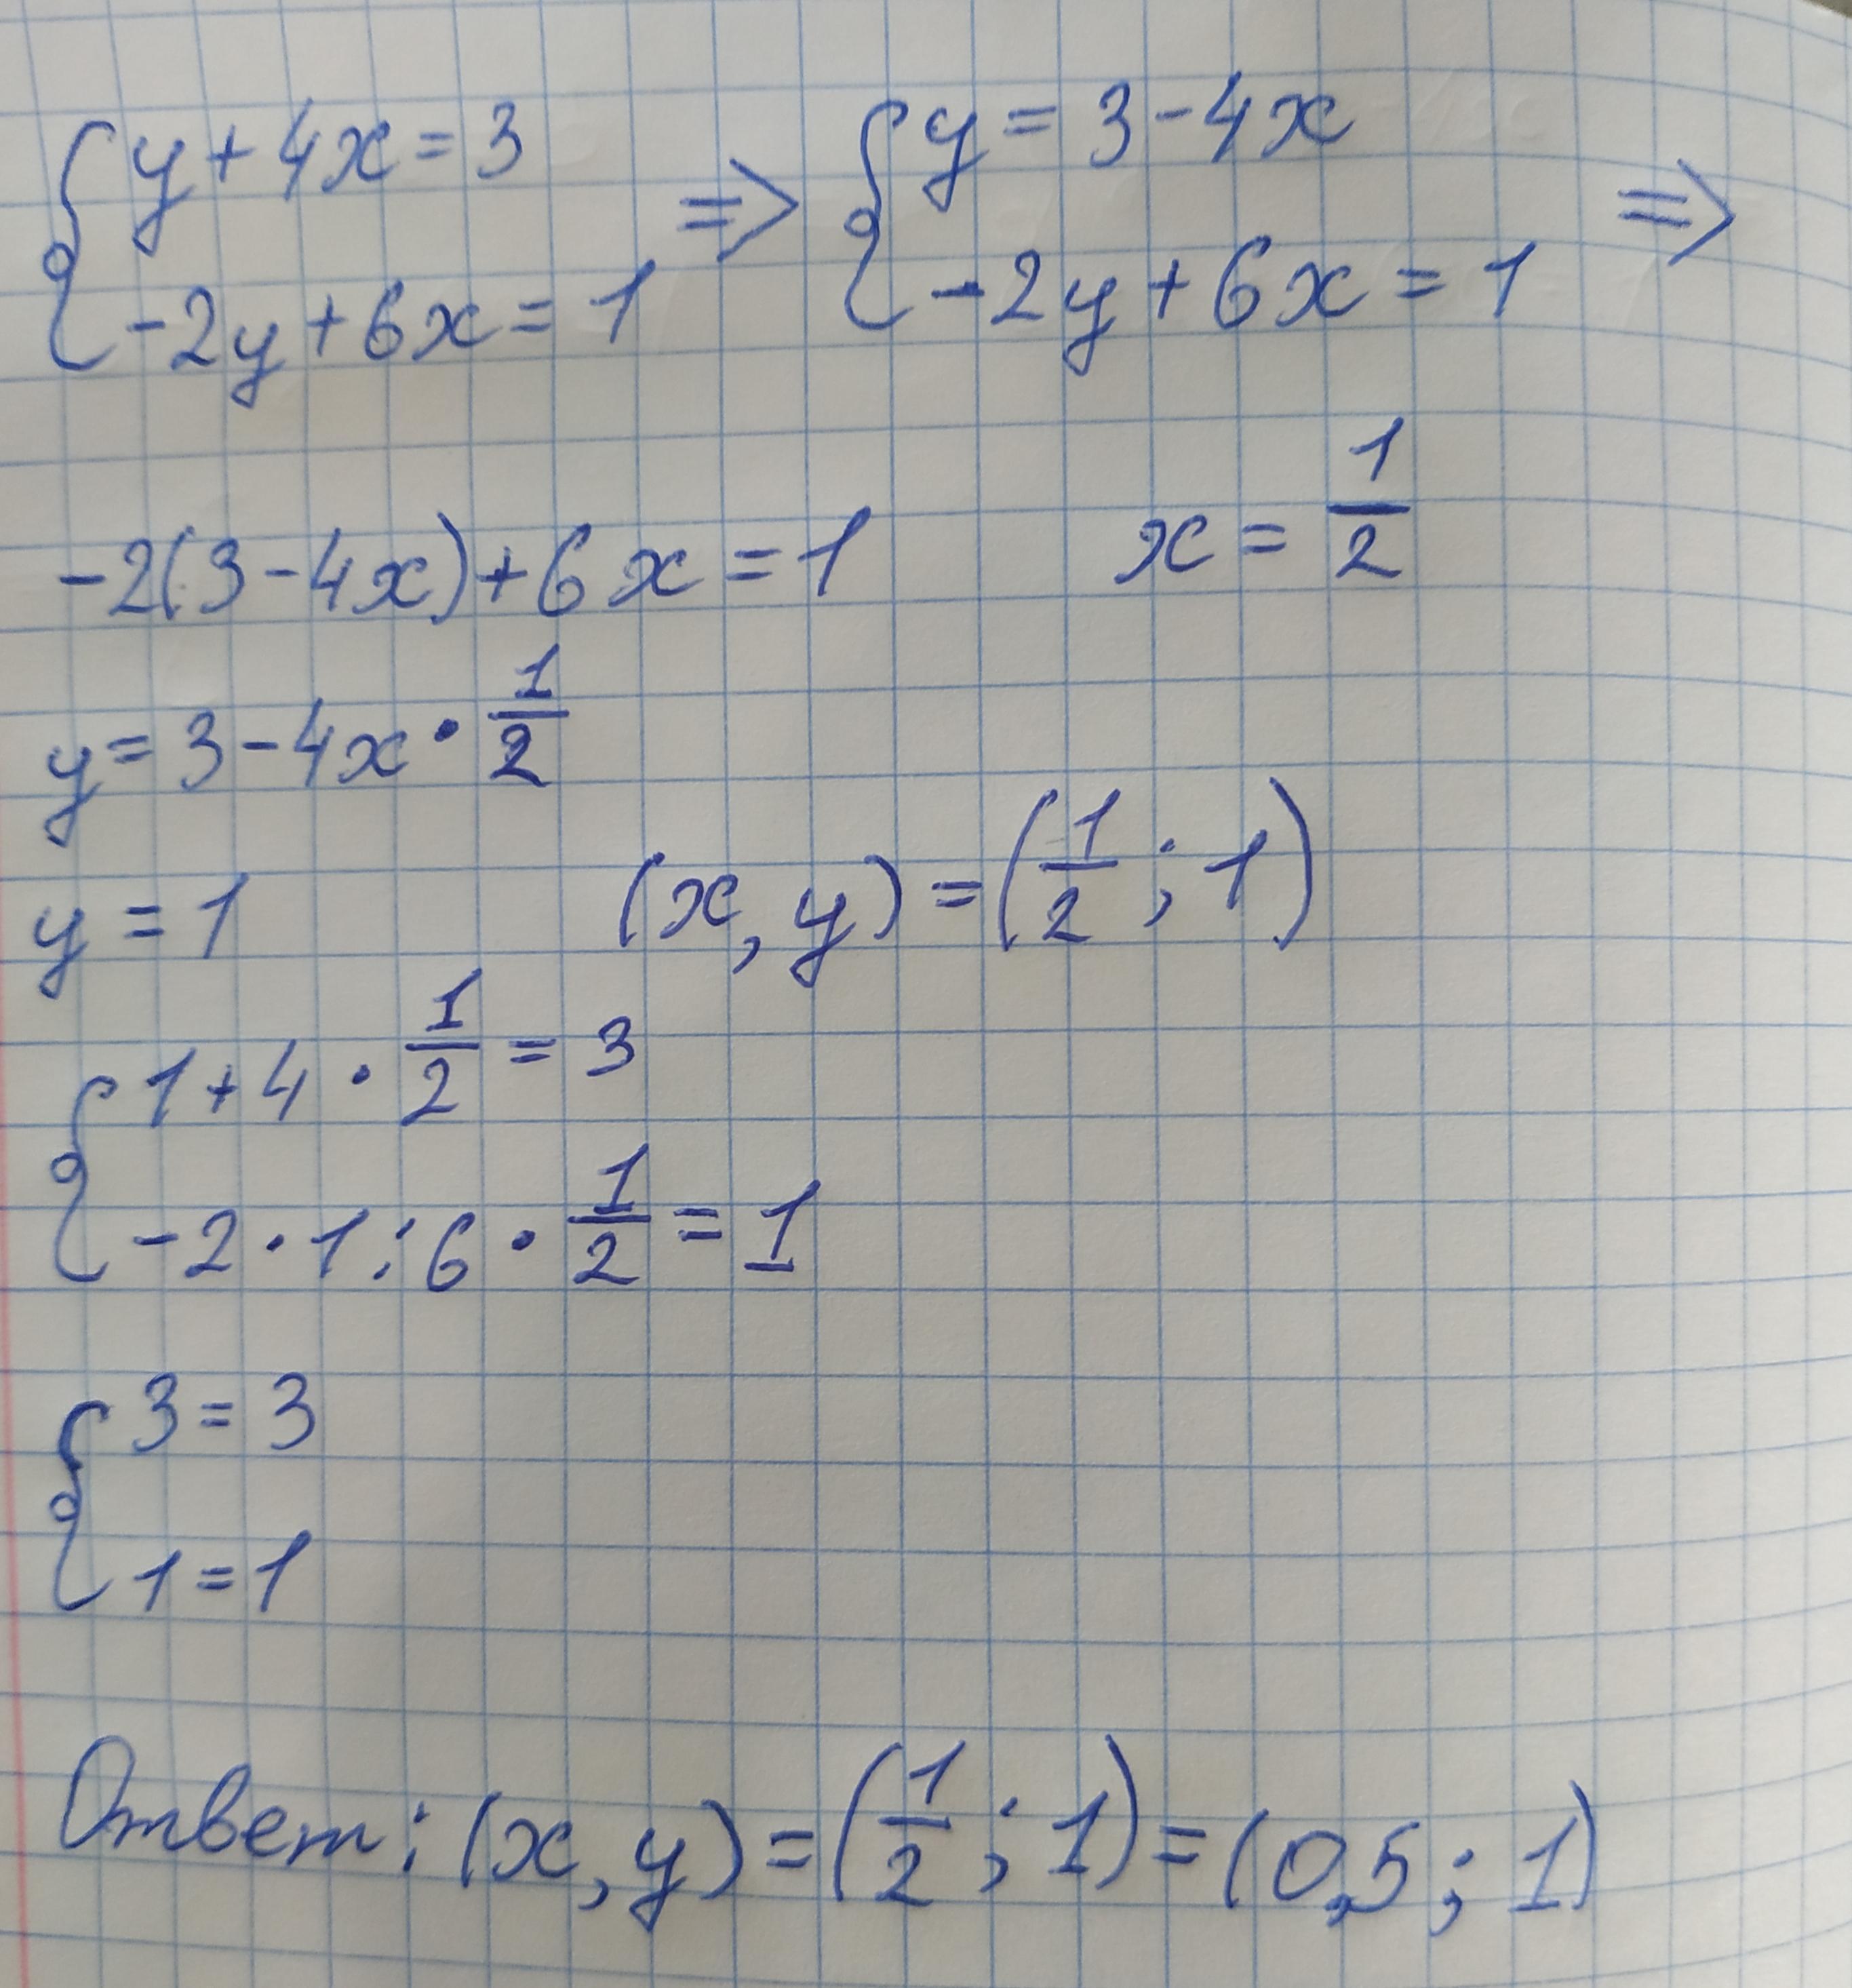 { y + 4x = 3 => { y = 3 - 4x =>
{ -2y + 6x = 1 { -2y + 6x = 1
-2(3 - 4x) + 6x = 1 x = 1/2
y = 3 - 4x · 1/2
y = 1 (x, y) = (1/2 ; 1)
{ 1 + 4 · 1/2 = 3
{ -2 · 1 ; 6 · 1/2 = 1
{ 3 = 3
{ 1 = 1
Ответ: (x, y) = (1/2 ; 1) = (0,5 ; 1)